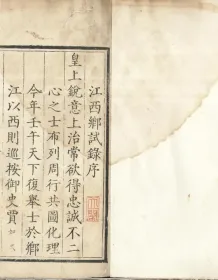 江西鄉試錄序
皇上銳意上治常欲得忠誠不二
心之士布列周行共圖化理
今年壬午天下復舉士於鄉
江以西則巡按御史賈